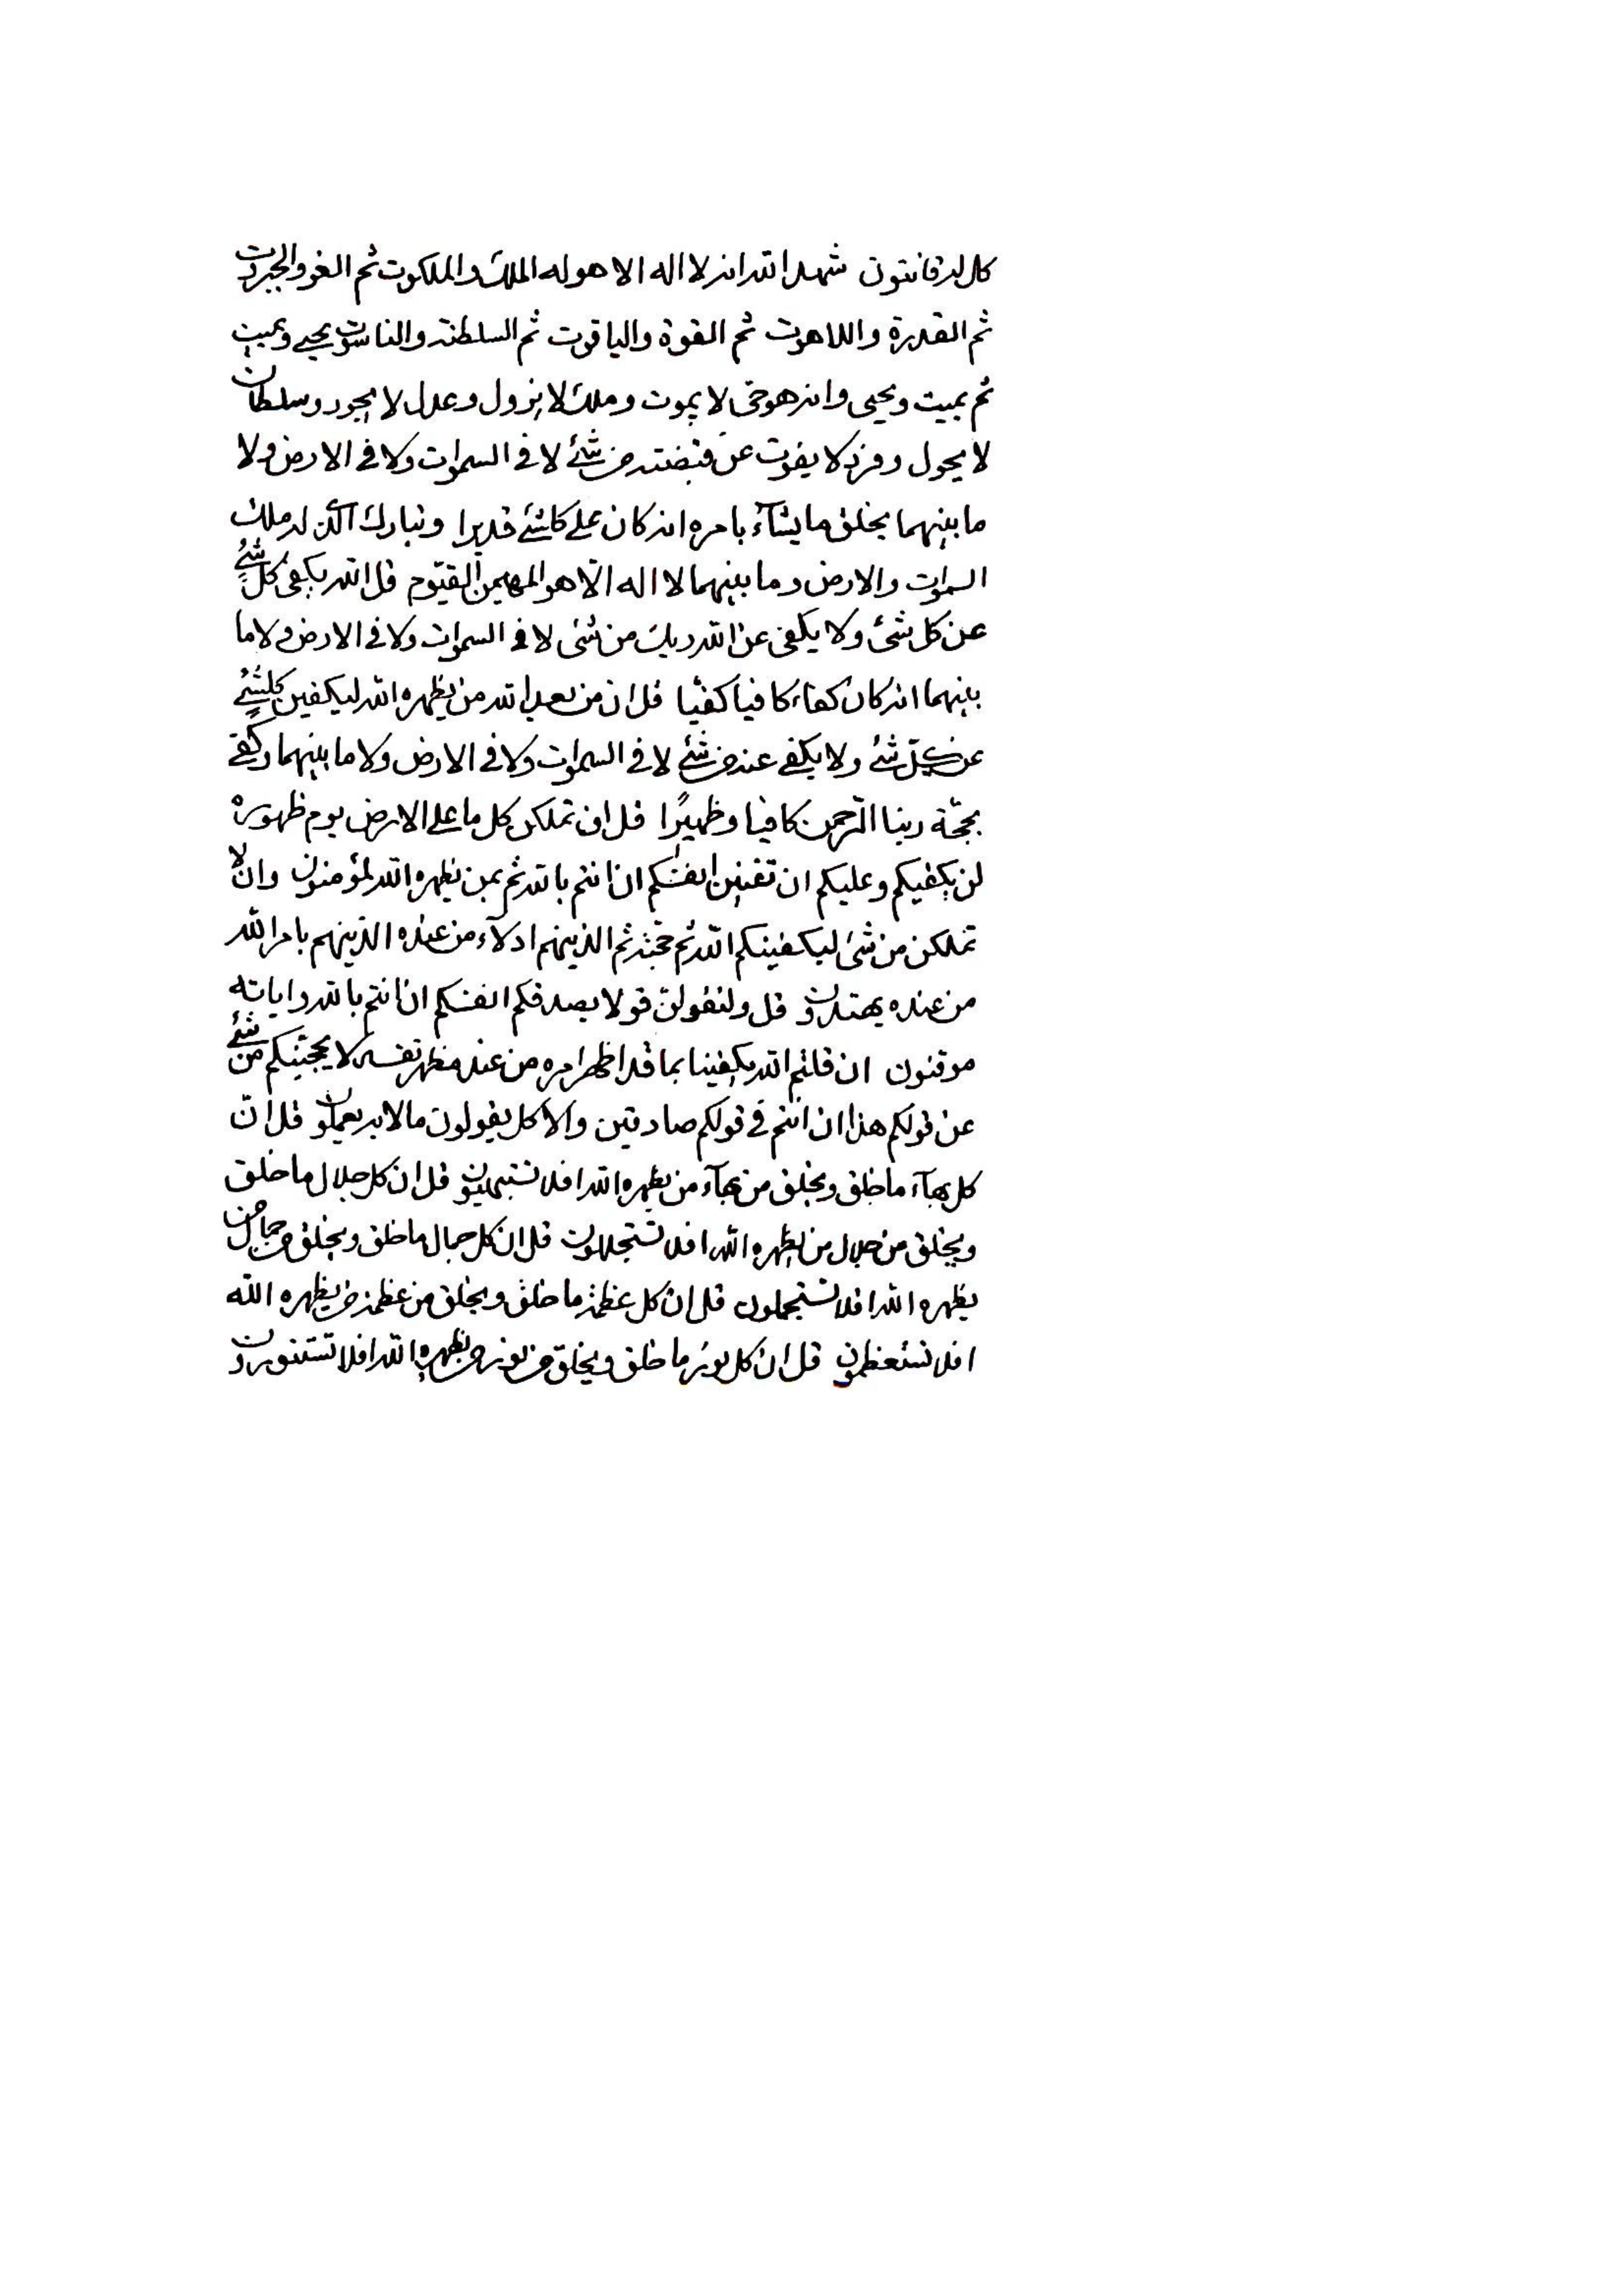 كل له قانتون شهد الله انه لا اله الا هو له الملك والملكوت ثم العز والجبروت
ثم القدرة واللاهوت ثم القوة والياقوت ثم السلطنة والناسوت يحيي ويميت
ثم يميت ويحيى وانه هو حى لا يموت وملك لا يزول وعدل لا يجور وسلطان
لا يحول وفرد لا يفوت عن قبضته من شئ لا في السموات ولا في الارض ولا
ما بينهما يخلق ما يشآء بامره انه كان على كلشئ قديرا وتبارك الذى له ملك
السموات والارض وما بينهما لا اله الّا هو المهيمن القيّوم قل الله يكفى كل شئ
عن كل شئ ولا يكفى عن الله ربك من شئ لا في السموات ولا في الارض ولا ما
بينهما انه كان كفاء كافيا كفيّا قل ان من بعد الله من يظهره الله ليكفين كلشئ
عن كلّ شئ ولا يكفي عنه من شئ لا في السموات ولا في الارض ولا ما بينهما وكفى
بحجّة ربنا الرّحمن كافيا وظهيرًا قل ان تملكن كل ما على الارض يوم ظهوره
لن يكفيكم وعليكم ان تغنين انفسكم ان انتم بالله ثم بمن يظهره الله لمؤمنون وان لا
تملكن من شئ ليكفينكم الله ثم حجته ثم الذينهم ادلآء من عنده الذينهم بامر الله
من عنده يهتدون قل ولتقولن قولا يصدقكم انفسكم ان انتم بالله واياته
موقنون ان قلتم الله يكفينا بما قد اظهر امره من عند مظهر نفسه لا يحجبنكم من شئ
عن قولكم هذا ان انتم في قولكم صادقين والا كل يقولون ما لا به يعملون قل انّ
كل بهآء ما خلق ويخلق من بهآء من يظهره الله افلا تستبهيون قل ان كل جلال ما خلق
ويخلق من جلال من يظهره الله افلا تستجللون قل ان كل جمال ما خلق ويخلق من جمال من
يظهره الله افلا تستجملون قل ان كل عظمة ما خلق ويخلق من عظمة من يظهره الله
افلا تستعظمون قل ان كل نور ما خلق ويخلق من نور من يظهره الله افلا تستنورون